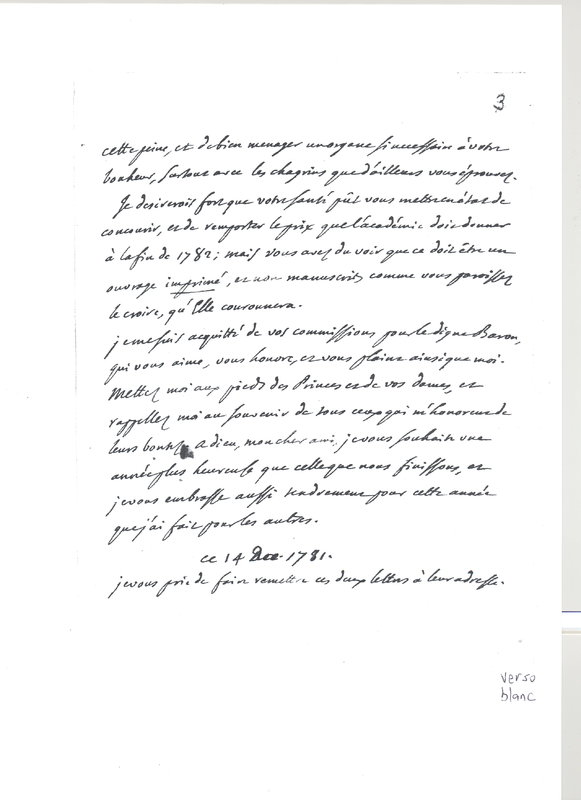 3
cette peine, et de bien menager un organe si necessaire à votre
bonheur, surtout avec les chagrins que d'ailleurs vous éprouvez.
Je desirerois fort que votre santé pût vous mettre en état de
concourir, et de remporter le prix que l'académie doit donner
à la fin de 1782; mais vous avez du voir que ce doit être un
ouvrage imprimé, et non manuscrit, comme vous paroissez
le croire, qu'Elle couronnera.
je me suis acquitté de vos commissions pour le digne Baron,
qui vous aime, vous honore, et vous plaint ainsi que moi.
Mettez moi aux pieds des Princes et de vos dames, et
rappellez moi au souvenir de tous ceux qui m'honorent de
leurs bontés. Adieu, mon cher ami. je vous souhaite une
année plus heureuse que celle que nous finissons, et
je vous embrasse aussi tendrement pour cette année
que j'ai fait pour les autres.
ce 14 Dec. 1781.
je vous prie de faire remettre ces deux lettres à leur adresse.
verso
blanc